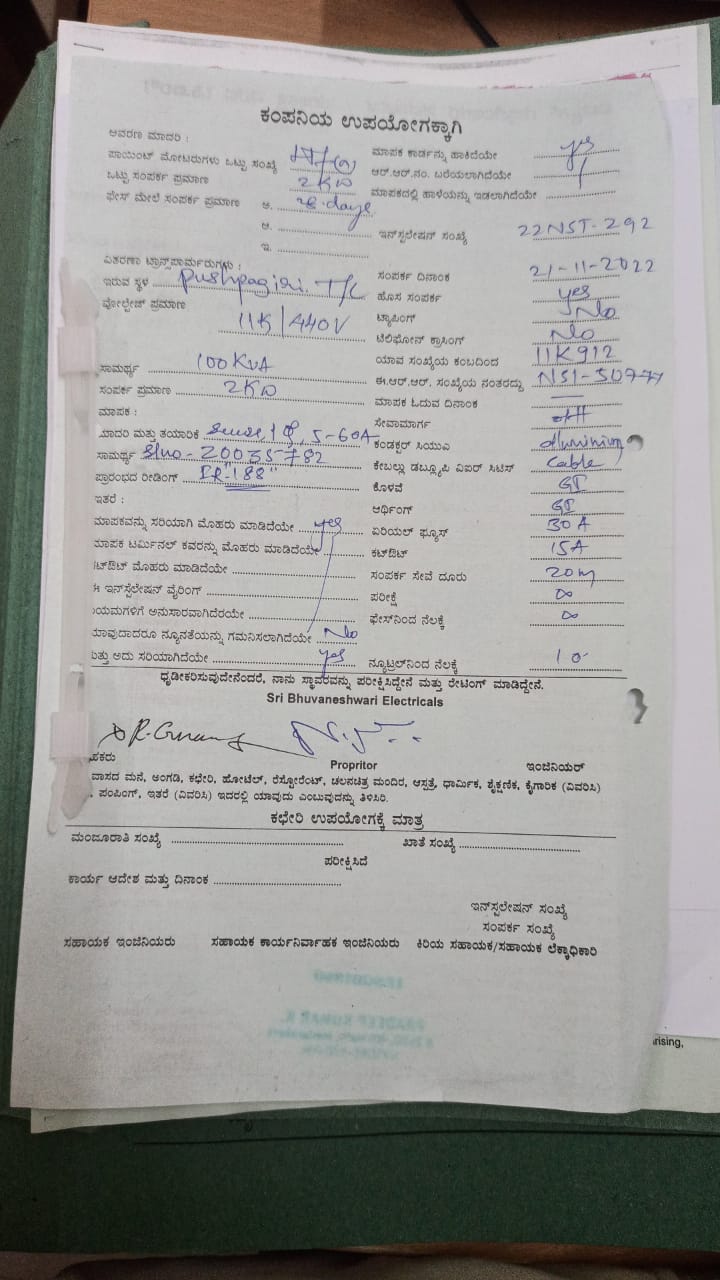 ಕಂಪನಿಯ ಉಪಯೋಗಕ್ಕಾಗಿ
ಆವರಣ ಮಾದರಿ :
ಪಾಯಿಂಟ್ ಮೋಟರುಗಳು ಒಟ್ಟು ಸಂಖ್ಯೆ
ಮಾಪಕ ಕಾರ್ಡನ್ನು ಹಾಕಿದೆಯೇ yes
ಒಟ್ಟು ಸಂಪರ್ಕ ಪ್ರಮಾಣ 2KW
ಆರ್.ಆರ್.ನಂ. ಬರೆಯಲಾಗಿದೆಯೇ
ಫೇಸ್ ಮೇಲೆ ಸಂಪರ್ಕ ಪ್ರಮಾಣ ಅ. 28 days
ಮಾಪಕದಲ್ಲಿ ಹಾಳೆಯನ್ನು ಇಡಲಾಗಿದೆಯೇ
ಆ.
ಇನ್‌ಸ್ಟಲೇಷನ್ ಸಂಖ್ಯೆ 22NST-292
ಇ.
ವಿತರಣಾ ಟ್ರಾನ್ಸ್‌ಪಾರ್ಮರುಗಳು :
ಇರುವ ಸ್ಥಳ Pushpagiri T/C
ಸಂಪರ್ಕ ದಿನಾಂಕ 21-11-2022
ಹೊಸ ಸಂಪರ್ಕ yes
ವೋಲ್ಟೇಜ್ ಪ್ರಮಾಣ 11K/440V
ಟ್ಯಾಪಿಂಗ್ No
ಟೆಲಿಫೋನ್ ಕ್ರಾಸಿಂಗ್ No
ಸಾಮರ್ಥ್ಯ 100KVA
ಯಾವ ಸಂಖ್ಯೆಯ ಕಂಬದಿಂದ 11K912
ಸಂಪರ್ಕ ಪ್ರಮಾಣ 2KW
ಈ.ಆರ್.ಆರ್. ಸಂಖ್ಯೆಯ ನಂತರದ್ದು NS1-50777
ಮಾಪಕ ಓದುವ ದಿನಾಂಕ
ಮಾಪಕ :
ಸೇವಾಮಾರ್ಗ OH
ಮಾದರಿ ಮತ್ತು ತಯಾರಿಕೆ 5-60A
ಕಂಡಕ್ಟರ್ ಸಿಯುಎ aluminium
ಸಾಮರ್ಥ್ಯ Slno-20035782
ಕೇಬಲ್ಲು ಡಬ್ಲ್ಯೂಪಿ ವಿಐರ್ ಸಿಟಿಸ್ Cable
ಪ್ರಾರಂಭದ ರೀಡಿಂಗ್ IR-"188"
ಕೊಳವೆ GI
ಇತರೆ :
ಆರ್ಥಿಂಗ್ GI
ಮಾಪಕವನ್ನು ಸರಿಯಾಗಿ ಮೊಹರು ಮಾಡಿದೆಯೇ yes
ಏರಿಯಲ್ ಫ್ಯೂಸ್ 30A
ಮಾಪಕ ಟರ್ಮಿನಲ್ ಕವರನ್ನು ಮೊಹರು ಮಾಡಿದೆಯೇ
ಕಟ್‌ಔಟ್ 15A
ಟ್‌ಔಟ್ ಮೊಹರು ಮಾಡಿದೆಯೇ
ಸಂಪರ್ಕ ಸೇವೆ ದೂರು 20m
ಇನ್‌ಸ್ಟಲೇಷನ್ ವೈರಿಂಗ್
ಪರೀಕ್ಷೆ ∞
ಯಮಗಳಿಗೆ ಅನುಸಾರವಾಗಿದೆಯೇ
ಫೇಸ್‌ನಿಂದ ನೆಲಕ್ಕೆ ∞
ಯಾವುದಾದರೂ ನ್ಯೂನತೆಯನ್ನು ಗಮನಿಸಲಾಗಿದೆಯೇ No
ಮತ್ತು ಅದು ಸರಿಯಾಗಿದೆಯೇ yes
ನ್ಯೂಟ್ರಲ್‌ನಿಂದ ನೆಲಕ್ಕೆ
ಧೃಡೀಕರಿಸುವುದೇನೆಂದರೆ, ನಾನು ಸ್ಥಾವರವನ್ನು ಪರೀಕ್ಷಿಸಿದ್ದೇನೆ ಮತ್ತು ರೇಟಿಂಗ್ ಮಾಡಿದ್ದೇನೆ.
Sri Bhuvaneshwari Electricals
ಹಕರು Propritor ಇಂಜಿನಿಯರ್
ವಾಸದ ಮನೆ, ಅಂಗಡಿ, ಕಛೇರಿ, ಹೋಟೆಲ್, ರೆಸ್ಟೋರೆಂಟ್, ಚಲನಚಿತ್ರ ಮಂದಿರ, ಆಸ್ಪತ್ರೆ, ಧಾರ್ಮಿಕ, ಶೈಕ್ಷಣಿಕ, ಕೈಗಾರಿಕೆ (ವಿವರಿಸಿ)
, ಪಂಪಿಂಗ್, ಇತರೆ (ವಿವರಿಸಿ) ಇದರಲ್ಲಿ ಯಾವುದು ಎಂಬುವುದನ್ನು ತಿಳಿಸಿರಿ.
ಕಛೇರಿ ಉಪಯೋಗಕ್ಕೆ ಮಾತ್ರ
ಮಂಜೂರಾತಿ ಸಂಖ್ಯೆ ಖಾತೆ ಸಂಖ್ಯೆ
ಪರೀಕ್ಷಿಸಿದೆ
ಕಾರ್ಯ ಆದೇಶ ಮತ್ತು ದಿನಾಂಕ
ಇನ್‌ಸ್ಟಲೇಷನ್ ಸಂಖ್ಯೆ
ಸಂಪರ್ಕ ಸಂಖ್ಯೆ
ಸಹಾಯಕ ಇಂಜಿನಿಯರು ಸಹಾಯಕ ಕಾರ್ಯನಿರ್ವಾಹಕ ಇಂಜಿನಿಯರು ಕಿರಿಯ ಸಹಾಯಕ/ಸಹಾಯಕ ಲೆಕ್ಕಾಧಿಕಾರಿ
rising,